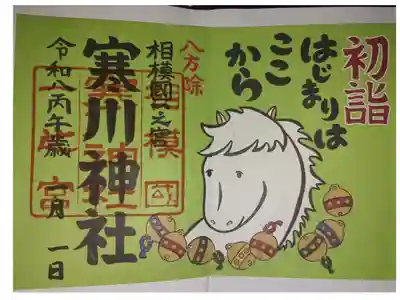 初詣
はじまりは
ここ
から
八方除
相模國一之宮
寒川神社
令和八丙午歳 一月 一日